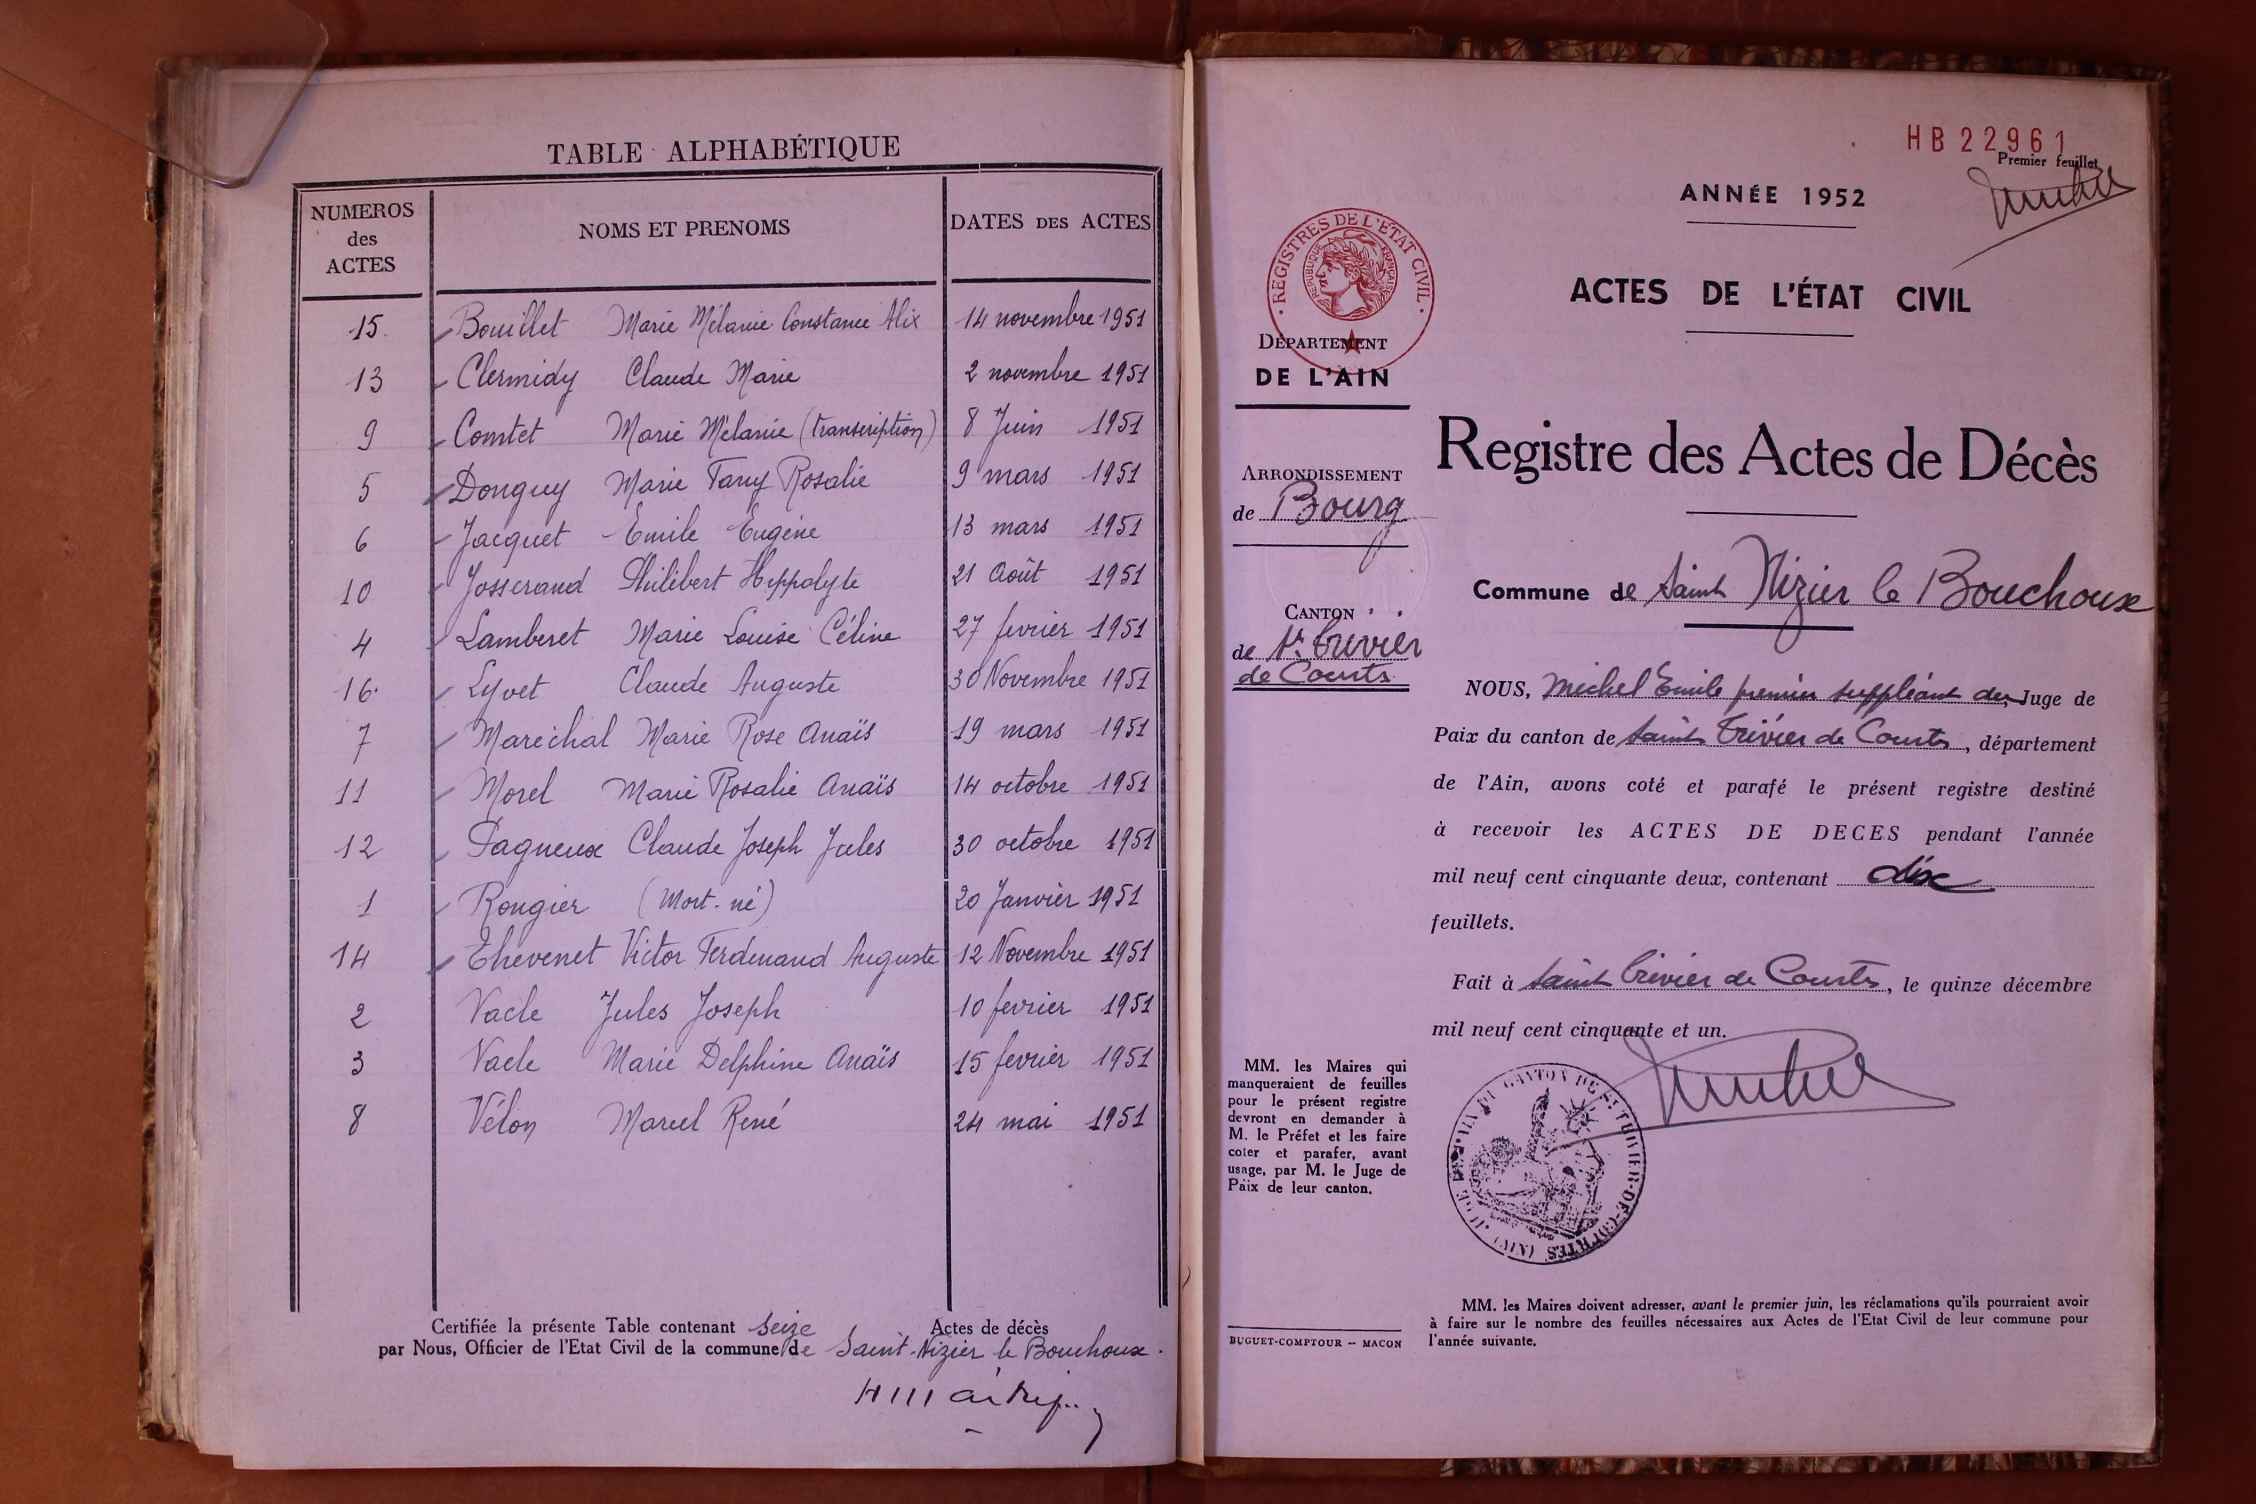 TABLE ALPHABÉTIQUE
NUMEROS des ACTES NOMS ET PRENOMS DATES DES ACTES
15 Bouillet Marie Mélanie Constance Alix 14 novembre 1951
13 Clermidy Claude Marie 2 novembre 1951
9 Comtet Marie Mélanie (transcription) 8 Juin 1951
5 Donguy Marie Fany Rosalie 9 mars 1951
6 Jacquet Emile Eugène 13 mars 1951
10 Josserand Philibert Hippolyte 21 Août 1951
4 Lamberet Marie Louise Céline 27 février 1951
16 Lyvet Claude Auguste 30 Novembre 1951
7 Maréchal Marie Rose Anaïs 19 mars 1951
11 Morel Marie Rosalie Anaïs 14 octobre 1951
12 Pagneux Claude Joseph Jules 30 octobre 1951
1 Rougier (Mort-né) 20 Janvier 1951
14 Thévenet Victor Ferdinand Auguste 12 Novembre 1951
2 Vacle Jules Joseph 10 fevrier 1951
3 Vacle Marie Delphine Anaïs 15 fevrier 1951
8 Vélon Marcel René 24 mai 1951
Certifiée la présente Table contenant seize Actes de décès
par Nous, Officier de l'Etat Civil de la commune de Saint-Nizier le Bouchoux.
HB22961
Premier feuillet
ANNÉE 1952
ACTES DE L'ÉTAT CIVIL
REGISTRES DE L'ETAT CIVIL
REPUBLIQUE FRANÇAISE
DÉPARTEMENT
DE L'AIN
ARRONDISSEMENT
de Bourg
CANTON
de St. Trivier
de Courtes
Registre des Actes de Décès
Commune de Saint Nizier le Bouchoux
NOUS, Michel Emile premier suppléant du Juge de
Paix du canton de Saint Trivier de Courtes, département
de l'Ain, avons coté et parafé le présent registre destiné
à recevoir les ACTES DE DECES pendant l'année
mil neuf cent cinquante deux, contenant dix
feuillets.
Fait à Saint Trivier de Courtes, le quinze décembre
mil neuf cent cinquante et un.
MM. les Maires qui
manqueraient de feuilles
pour le présent registre
devront en demander à
M. le Préfet et les faire
coter et parafer, avant
usage, par M. le Juge de
Paix de leur canton.
JUGE DE PAIX DU CANTON DE ST TRIVIER-DE-COURTES (AIN)
MM. les Maires doivent adresser, avant le premier juin, les réclamations qu'ils pourraient avoir
à faire sur le nombre des feuilles nécessaires aux Actes de l'Etat Civil de leur commune pour
l'année suivante.
BUGUET-COMPTOUR -- MACON